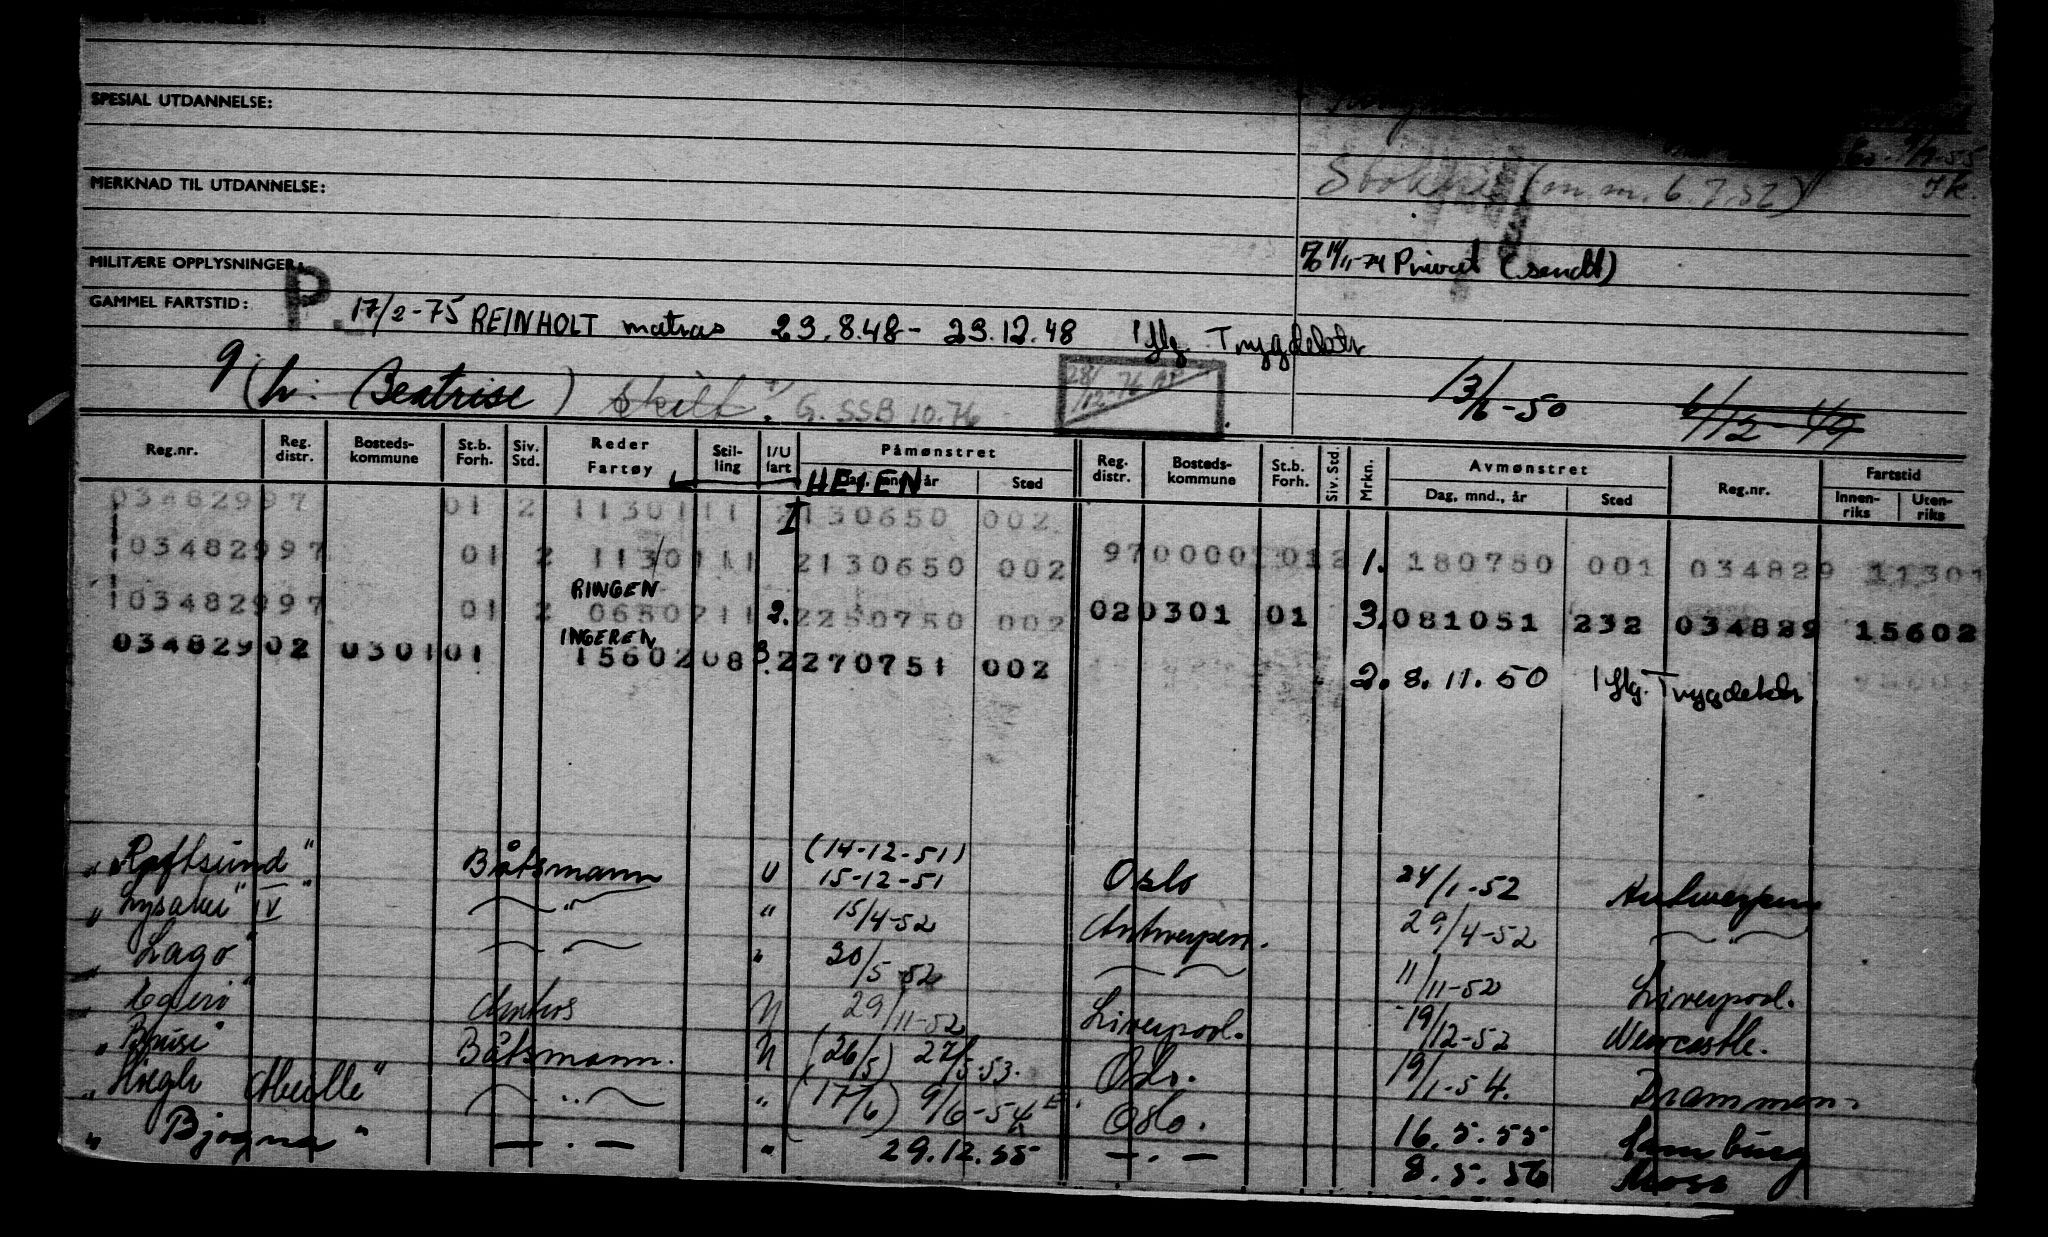 SPESIAL UTDANNELSE:
MERKNAD TIL UTDANNELSE:
(m.m. 6.7.52) Jk.
MILITÆRE OPPLYSNINGER:
14/11-74 Privat (sendt)
GAMMEL FARTSTID:
P. 17/2-75 REINHOLT matros 29.8.48 - 23.12.48 Iflg. Trygdektr
g. (h: Beatrise) Skilt. G. SSB 10.76
28/12-76
13/6-50 6/12-49
Reg.nr. Reg. distr. Bosteds-kommune St.b. Forh. Siv. Std. Reder Fartøy Stil-ling I/U fart Påmønstret Dag, mnd., år Sted Reg. distr. Bosteds-kommune St.b. Forh. Siv. Std. Mrkn. Avmønstret Dag, mnd., år Sted Reg.nr. Fartstid Innen-riks Uten-riks
HELEN
034829 97 01 2 1130111 I 2130650 002
034829 97 01 2 1130111 2130650 002 970000 01 2 1. 180750 001 034829 11301
RINGEN
034829 97 01 2 0650211 2. 2250750 002 020301 01 3. 081051 232 034829 15602
INGEREN
034829 02 0301 01 15602 08 3. 2270751 002 2. 8.11.50 Iflg. Trygdektr
(14-12-51)
"Raftsund" Båtsmann U 15-12-51 Oslo 24/1-52 Antwerpen
"Lysaker IV" — " — " 15/4-52 Antwerpen. 29/4-52 — " —
"Lago" — " — " 20/5-52 — " — 11/11-52 Liverpool.
29/11-52 Liverpool. 19/12-52 Newcastle.
"Brusi" Båtsmann. U (26/5) 27/5-53. Oslo. 19/1-54. Drammen.
— " — " (17/6) 9/6-54 Oslo. 16.5.55 Hamburg
"Bjogna" — " — " 29.12.55 — " — 8.5.56 Moss